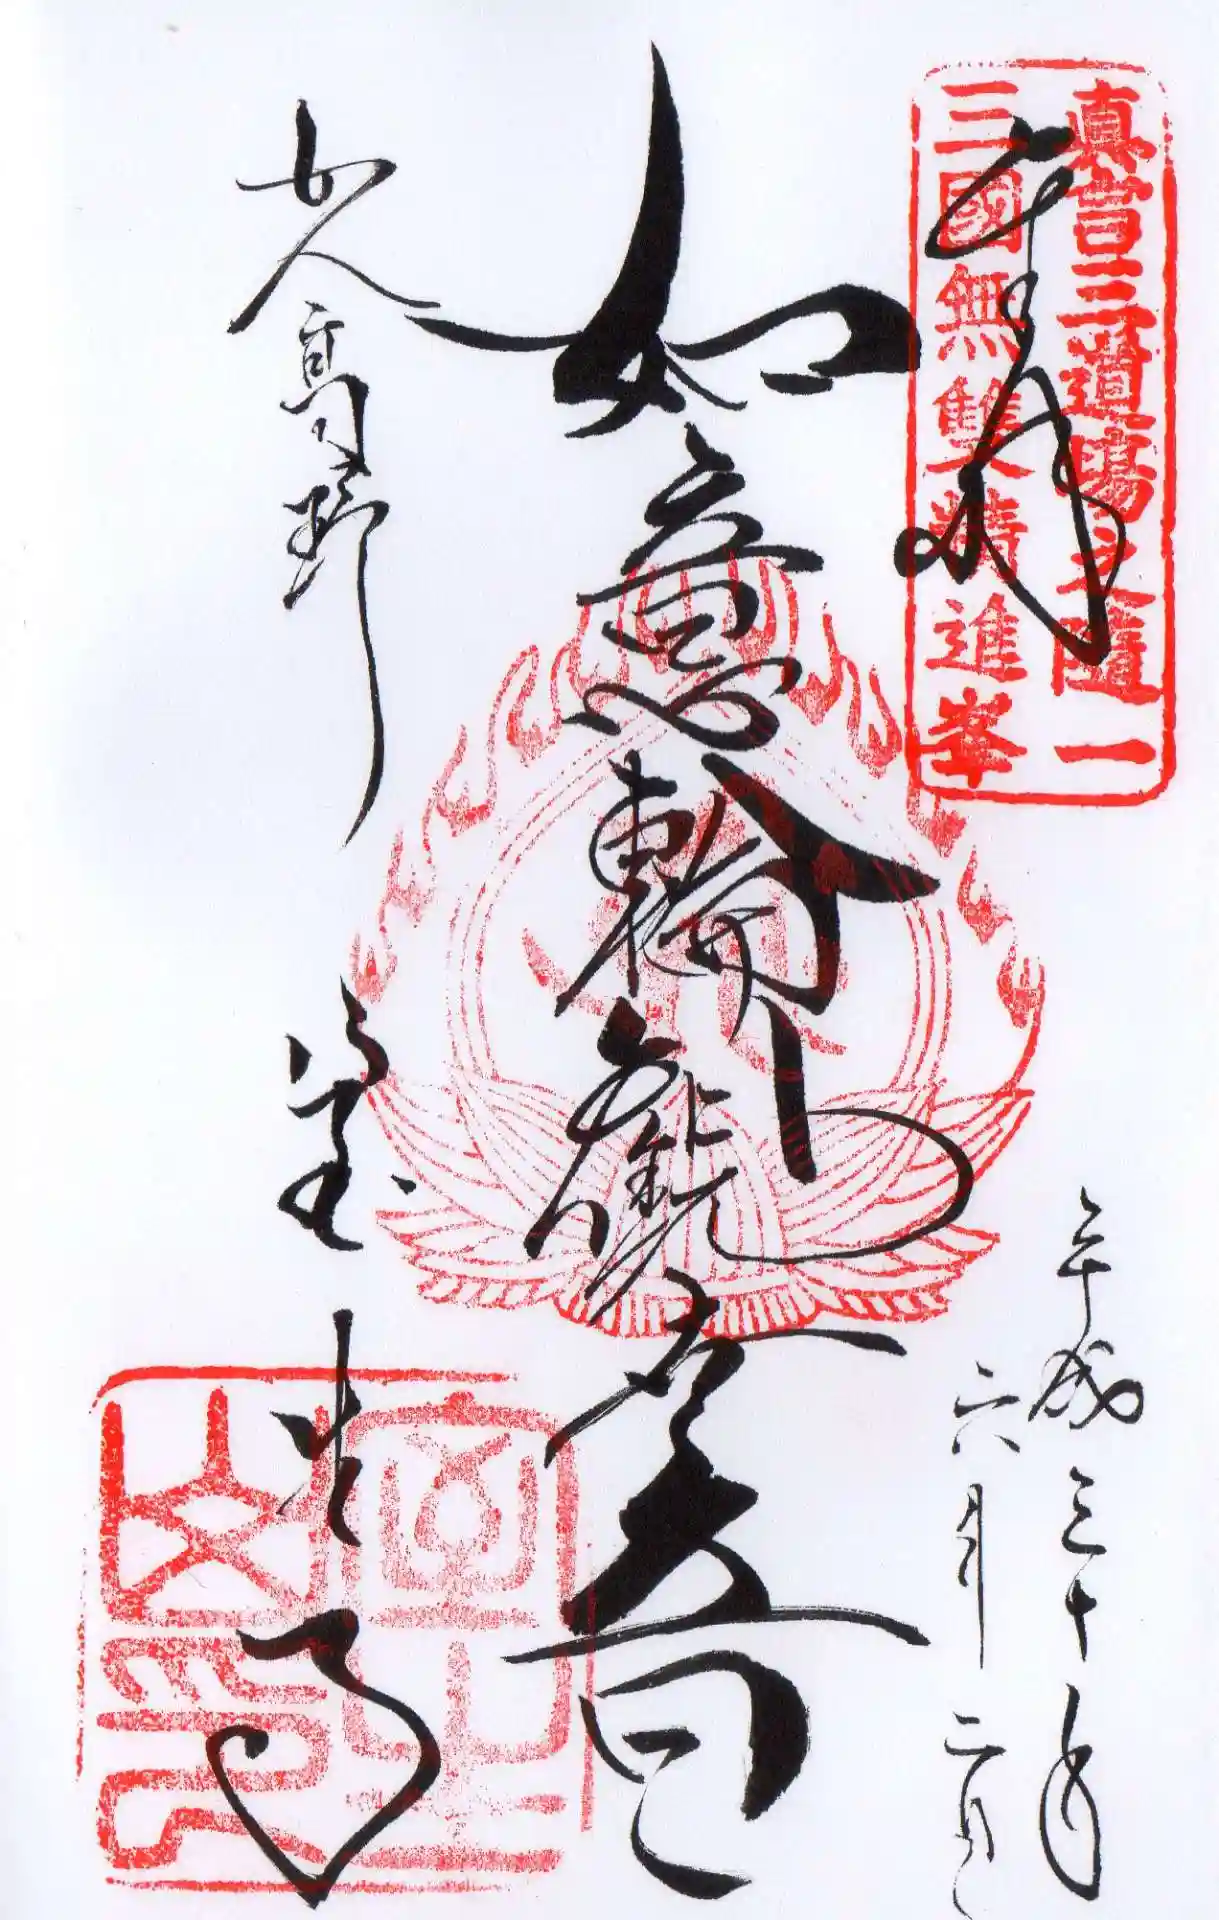 奉拝
真言三道場之隨一
三國無雙精進峯
平成三十年
六月二日
如意輪観世音
女人高野
室生寺